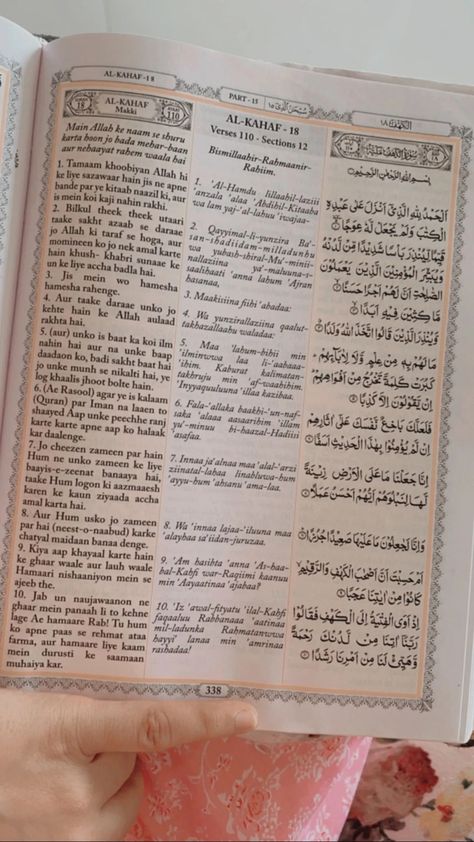 AL-KAHAF - 18
PART - 15
سُبْحٰنَ الَّذِيْ ١٥
الْكَهْف ١٨
AL-KAHAF
Makki
18
110
Main Allah ke naam se shuru
karta hoon jo bada mehar-baan
aur nehaayat rahem waala hai
1. Tamaam khoobiyan Allah hi
ke liye sazawar hain jis ne apne
bande par ye kitaab naazil ki, aur
is mein koi kaji nahin rakhi.
2. Bilkul theek theek utaari
taake sakht azaab se daraae
jo Allah ki taraf se hoga, aur
momineen ko jo nek amal karte
hain khush- khabri sunaae ke
un ke liye accha badla hai.
3. Jis mein wo hamesha
hamesha rahenge.
4. Aur taake daraae unko jo
kehte hain ke Allah aulaad
rakhta hai.
5. (aur) unko is baat ka koi ilm
nahin hai aur na unke baap
daadaon ko, badi sakht baat hai
jo unke munh se nikalti hai, ye
log khaalis jhoot bolte hain.
6. (Ae Rasool) agar ye is kalaam
(Quran) par Iman na laaen to
shaayed Aap unke peechhe ranj
karte karte apne aap ko halaak
kar daalenge.
7. Jo cheezen zameen par hain
Hum ne unko zameen ke liye
baayis-e-zeenat banaaya hai,
taake Hum logon ki aazmaaesh
karen ke kaun ziyaada accha
amal karta hain.
8. Aur Hum usko jo zameen
par hai (neest-o-naabud) karke
chatyal maidaan banaa denge.
9. Kiya aap khayaal karte hain
ke ghaar waale aur lauh waale
Hamaari nishaaniyon mein se
ajeeb the.
10. Jab un naujawaanon ne
ghaar mein panaah li to kehne
lage Ae hamaare Rab! Tu hum
ko apne paas se rehmat ataa
farma, aur hamaare liye kaam
mein durusti ke saamaan
muhaiya kar.
AL-KAHAF - 18
Verses 110 - Sections 12
Bismillaahir-Rahmaanir-
Rahiim.
1. 'Al-Hamdu lillaahil-laziii
'anzala 'alaa 'Abdihil-Kitaaba
wa lam yaj-'al-lahuu 'iwajaa-
2. Qayyimal-li-yunzira Ba'-
san-shadiidam-milladunhu
wa yubash-shiral-Mu'-minii-
nallaziina ya'-maluuna-s-
saalihaati 'anna lahum 'Ajran
hasanaa,
3. Maakisiina fiihi 'abadaa:
4. Wa yunzirallaziina qaalut-
takhazallaahu waladaa:
5. Maa 'lahum-bihii min
'ilminwwa laa li-'aabaaa-
'ihim. Kaburat kalimatan-
takhruju min 'af-waahihim.
'Inyyaquuluuna 'illaa kazibaa.
6. Fala-'allaka baakhi-'un-naf-
saka 'alaaa aasaarihim 'illam
yu'-minuu bi-haazal-Hadiisi
'asafaa.
7. Innaa ja'alnaa maa 'alal-'arzi
ziinatal-lahaa linabluwa-hum
'ayyu-hum 'ahsanu 'ama-laa.
8. Wa 'innaa lajaa-'iluuna maa
'alayhaa sa'iidan-juruzaa.
9. 'Am hasibta 'anna 'As-haa-
bal-Kahfi war-Raqiimi kaanuu
min 'Aayaatinaa 'ajabaa?
10. 'Iz 'awal-fityatu 'ilal-Kahfi
faqaaluu Rabbanaaa 'aatinaa
mil-ladunka Rahmatanwwa
hayyi' lanaa min 'amrinaa
rashadaa!
بِسْمِ اللهِ الرَّحْمٰنِ الرَّحِيْمِ
اَلْحَمْدُ لِلّٰهِ الَّذِيْٓ اَنْزَلَ عَلٰى عَبْدِهِ
الْكِتٰبَ وَلَمْ يَجْعَلْ لَّهٗ عِوَجًا ۝١
قَيِّمًا لِّيُنْذِرَ بَاْسًا شَدِيْدًا مِّنْ لَّدُنْهُ
وَيُبَشِّرَ الْمُؤْمِنِيْنَ الَّذِيْنَ يَعْمَلُوْنَ
الصّٰلِحٰتِ اَنَّ لَهُمْ اَجْرًا حَسَنًا ۝٢
مَّاكِثِيْنَ فِيْهِ اَبَدًا ۝٣
وَّيُنْذِرَ الَّذِيْنَ قَالُوا اتَّخَذَ اللهُ وَلَدًا ۝٤
مَا لَهُمْ بِهٖ مِنْ عِلْمٍ وَّلَا لِاٰبَآئِهِمْ
كَبُرَتْ كَلِمَةً تَخْرُجُ مِنْ اَفْوَاهِهِمْ
اِنْ يَّقُوْلُوْنَ اِلَّا كَذِبًا ۝٥
فَلَعَلَّكَ بَاخِعٌ نَّفْسَكَ عَلٰٓى اٰثَارِهِمْ
اِنْ لَّمْ يُؤْمِنُوْا بِهٰذَا الْحَدِيْثِ اَسَفًا ۝٦
اِنَّا جَعَلْنَا مَا عَلَى الْاَرْضِ زِيْنَةً
لَّهَا لِنَبْلُوَهُمْ اَيُّهُمْ اَحْسَنُ عَمَلًا ۝٧
وَاِنَّا لَجٰعِلُوْنَ مَا عَلَيْهَا صَعِيْدًا جُرُزًا ۝٨
اَمْ حَسِبْتَ اَنَّ اَصْحٰبَ الْكَهْفِ وَالرَّقِيْمِ
كَانُوْا مِنْ اٰيٰتِنَا عَجَبًا ۝٩
اِذْ اَوَى الْفِتْيَةُ اِلَى الْكَهْفِ فَقَالُوْا
رَبَّنَآ اٰتِنَا مِنْ لَّدُنْكَ رَحْمَةً
وَّهَيِّئْ لَنَا مِنْ اَمْرِنَا رَشَدًا ۝١٠
338